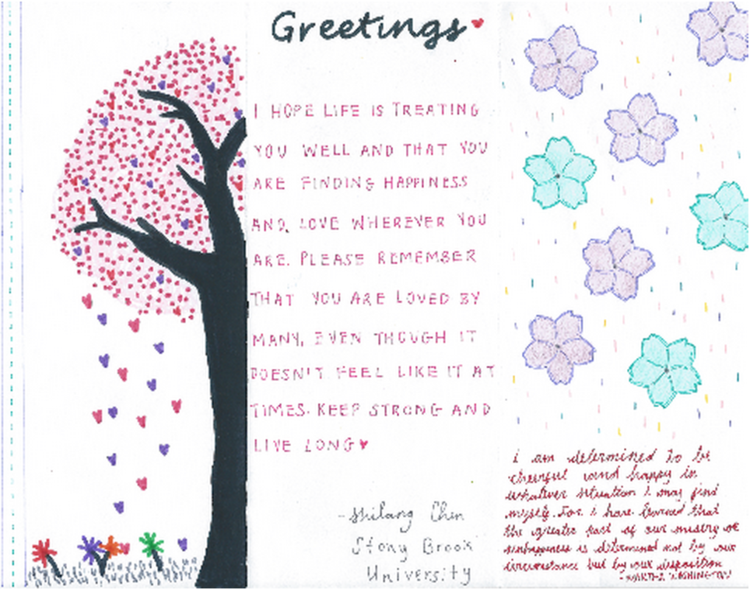 Greetings
I HOPE LIFE IS TREATING
YOU WELL AND THAT YOU
ARE FINDING HAPPINESS
AND LOVE WHEREVER YOU
ARE. PLEASE REMEMBER
THAT YOU ARE LOVED BY
MANY, EVEN THOUGH IT
DOESN'T FEEL LIKE IT AT
TIMES. KEEP STRONG AND
LIVE LONG♥
-Shilang Chen
Stony Brook
University
i am determined to be
cheerful and happy in
whatever situation I may find
myself. For I have learned that
the greater part of our misery or
unhappiness is determined not by our
circumstance but by our disposition
-MARTHA WASHINGTON